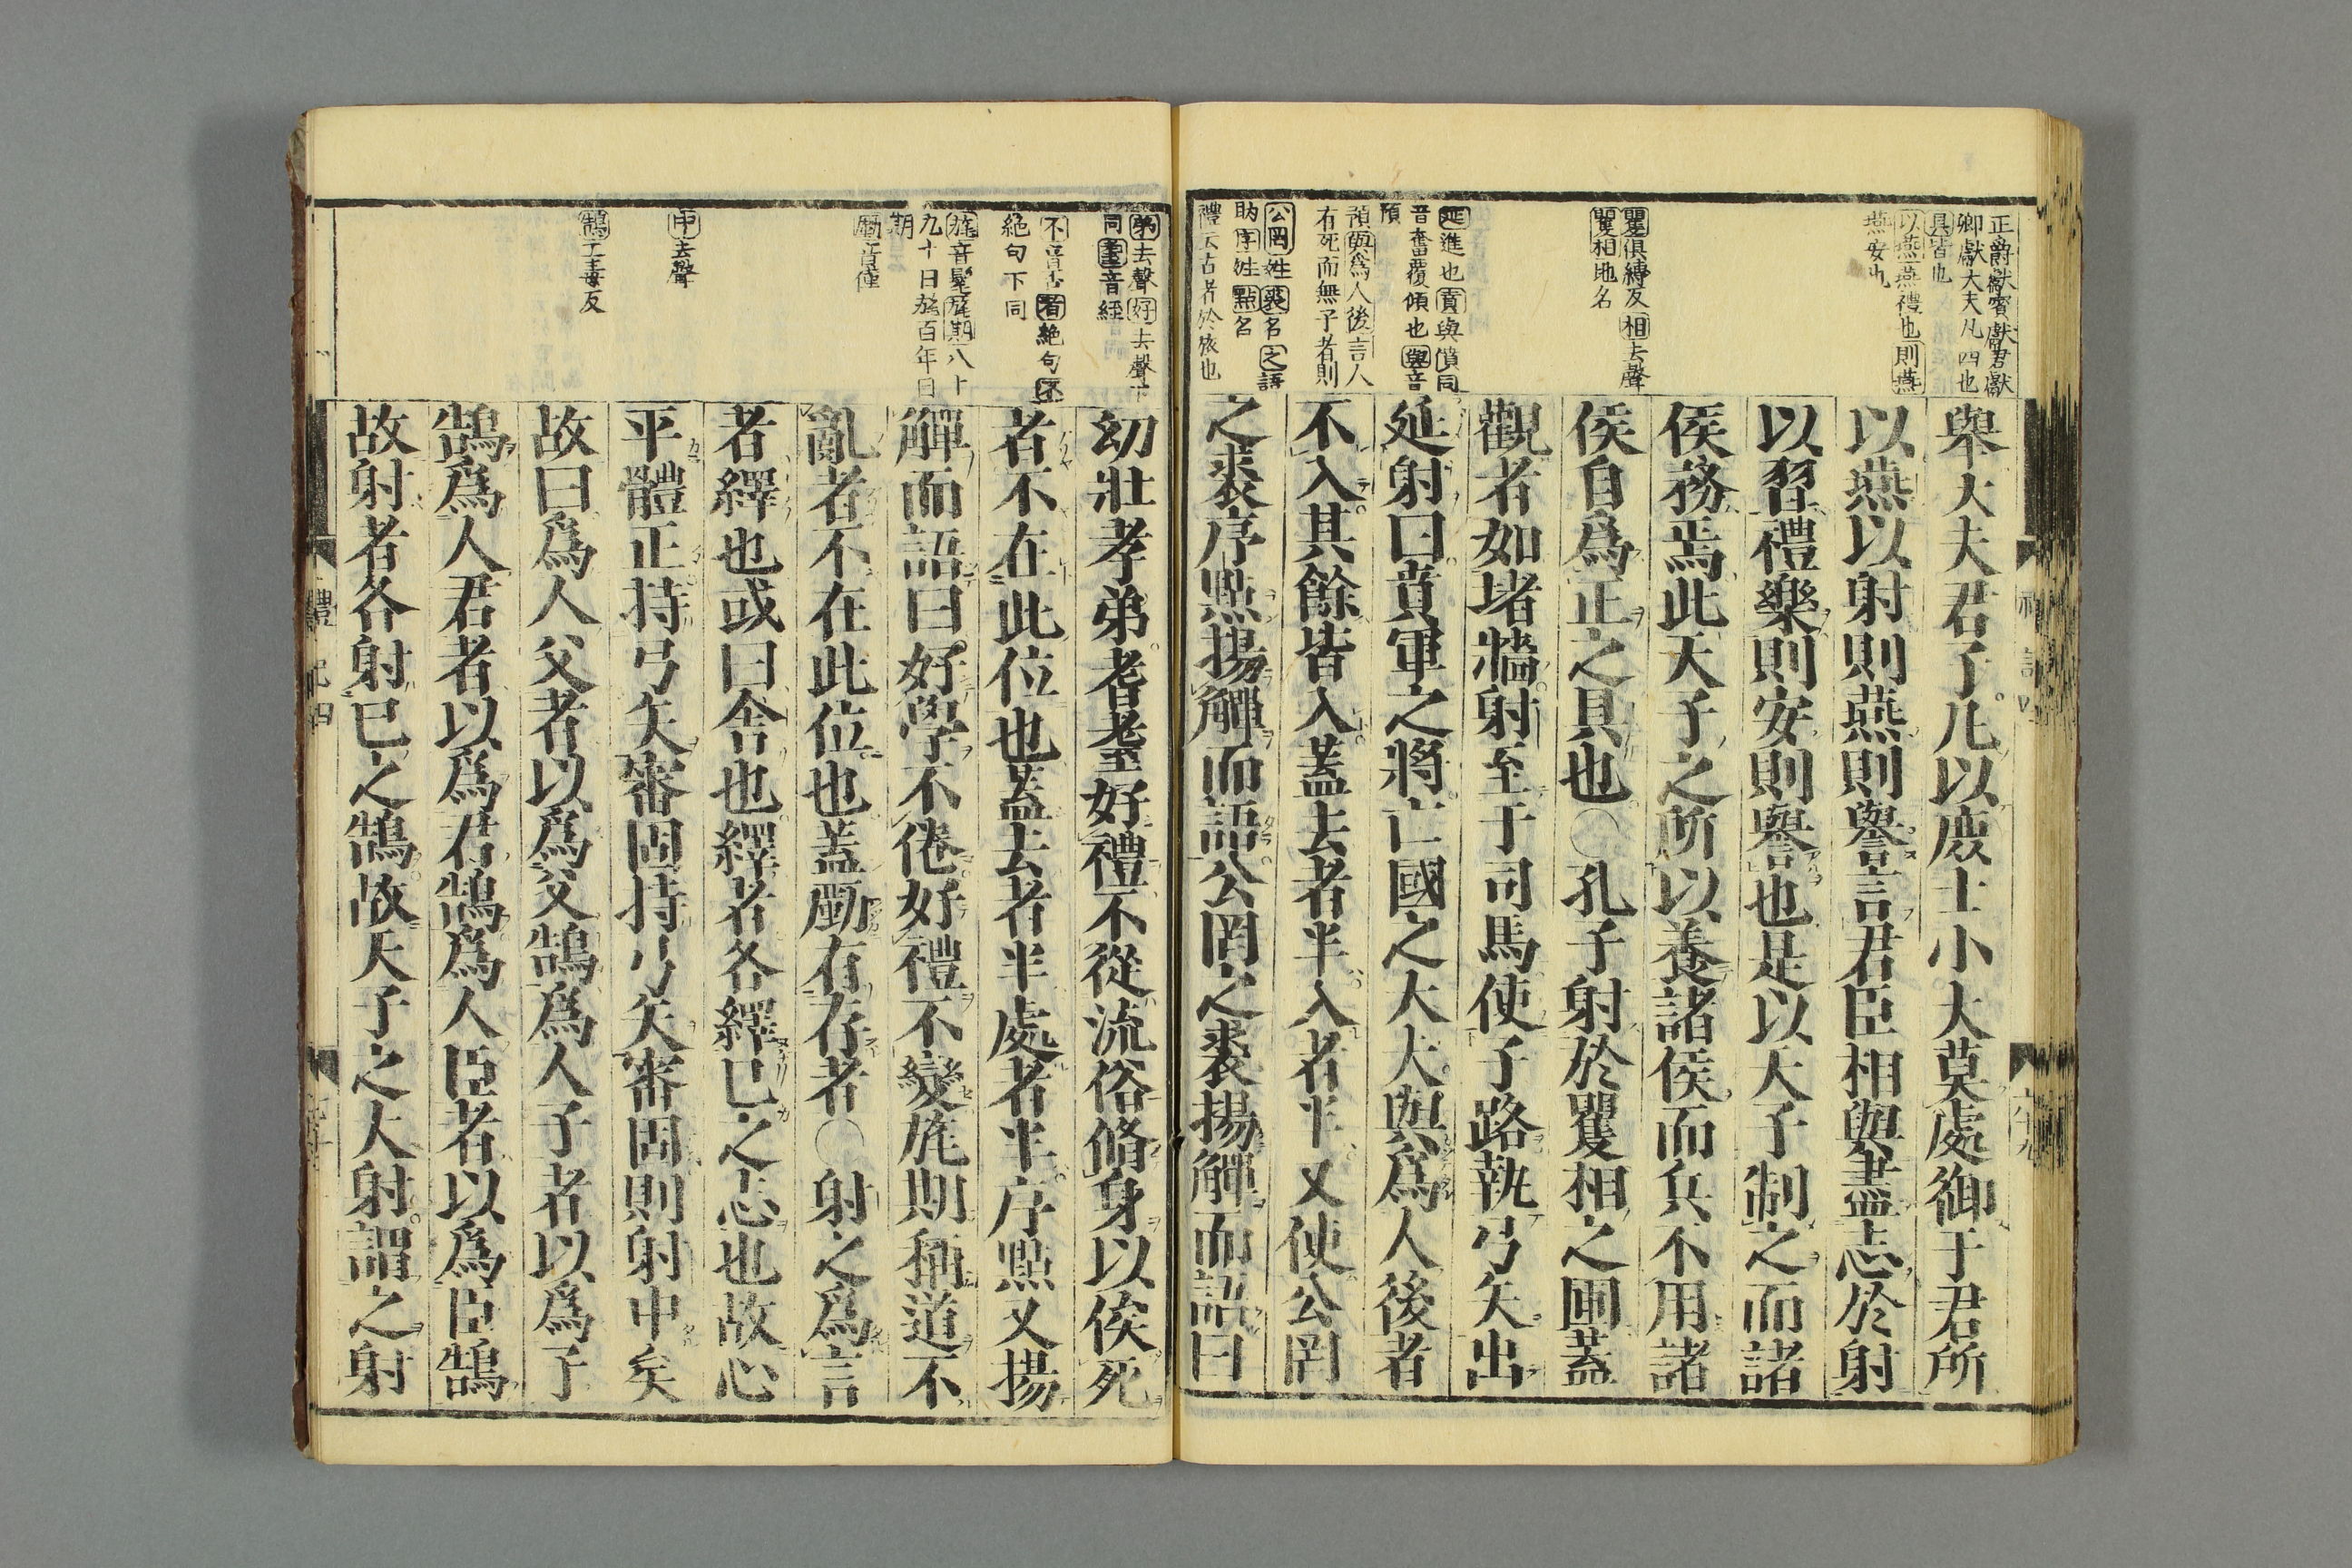 正爵獻賓獻君獻
卿獻大夫凡四也
具皆也
以燕燕禮也則燕
燕安也
矍俱縛反相去聲
矍相地名
延進也賁與僨同
音奮覆傾也與音
預
預與為人後言人
有死而無子者則
公罔姓裘名之語
助序姓點名
禮云古者於旅也
舉大夫君子凡以庶士小大莫處御于君所
以燕以射則燕則譽言君臣相與盡志於射
以習禮樂則安則譽也是以天子制之而諸
侯務焉此天子之所以養諸侯而兵不用諸
侯自爲正之具也〇孔子射於矍相之圃蓋
觀者如堵牆射至于司馬使子路執弓矢出
延射曰賁軍之將亡國之大夫與爲人後者
不入其餘皆入蓋去者半入者半又使公罔
之裘序點揚觶而語公罔之裘揚觶而語曰
禮記四
六十九
弟去聲好去聲下
同耋音絰
不音否者絶句不
絶句下同
旄音髦旄期八十
九十日旄百年日
期
勵音僅
中去聲
鵠工毒反
幼壯孝弟耆耋好禮不從流俗脩身以俟死
者不在此位也蓋去者半處者半序點又揚
觶而語曰好學不倦好禮不變旄期稱道不
亂者不在此位也蓋勵有存者〇射之爲言
者繹也或曰舍也繹者各繹已之志也故心
平體正持弓矢審固持弓矢審固則射中矣
故曰爲人父者以爲父鵠爲人子者以爲子
鵠爲人君者以爲君鵠爲人臣者以爲臣鵠
故射者各射已之鵠故天子之大射謂之射
禮記四